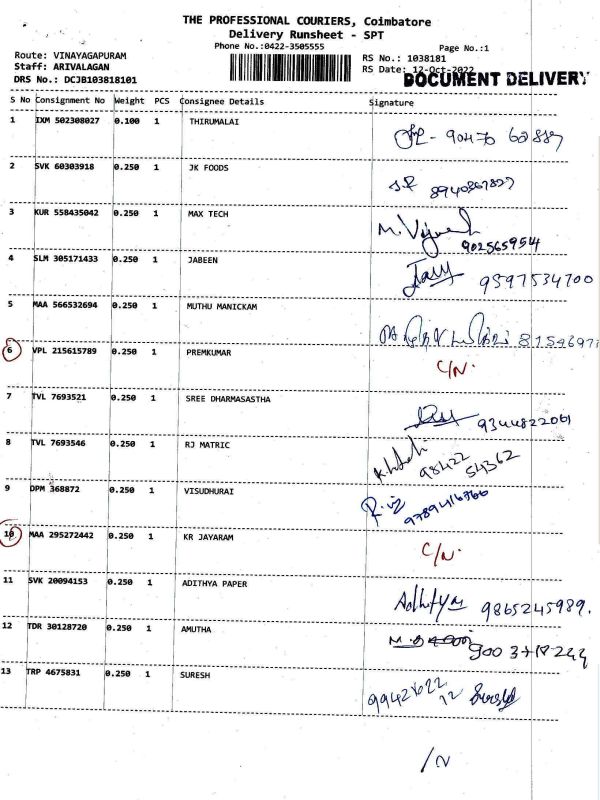 THE PROFESSIONAL COURIERS, Coimbatore
Delivery Runsheet - SPT
Phone No.:0422-3505555
Page No.:1
Route: VINAYAGAPURAM
RS No.: 1038181
Staff: ARIVALAGAN
RS Date: 12-Oct-2022
DRS No.: DCJB103818101
DOCUMENT DELIVERY
S No Consignment No Weight PCS Consignee Details Signature
1 IXM 502308027 0.100 1 THIRUMALAI
2 SVK 60303918 0.250 1 JK FOODS
3 KUR 558435042 0.250 1 MAX TECH M. 9025659514
4 SLM 305171433 0.250 1 JABEEN 9597534700
5 MAA 566532694 0.250 1 MUTHU MANICKAM
6 VPL 215615789 0.250 1 PREMKUMAR C/N.
7 TVL 7693521 0.250 1 SREE DHARMASASTHA 9344822061
8 TVL 7693546 0.250 1 RJ MATRIC 98422 54362
9 DPM 368872 0.250 1 VISUDHURAI 9789416766
10 MAA 295272442 0.250 1 KR JAYARAM C/N.
11 SVK 20094153 0.250 1 ADITHYA PAPER Adhitya 9865245989.
12 TDR 30128720 0.250 1 AMUTHA
13 TRP 4675831 0.250 1 SURESH
/N